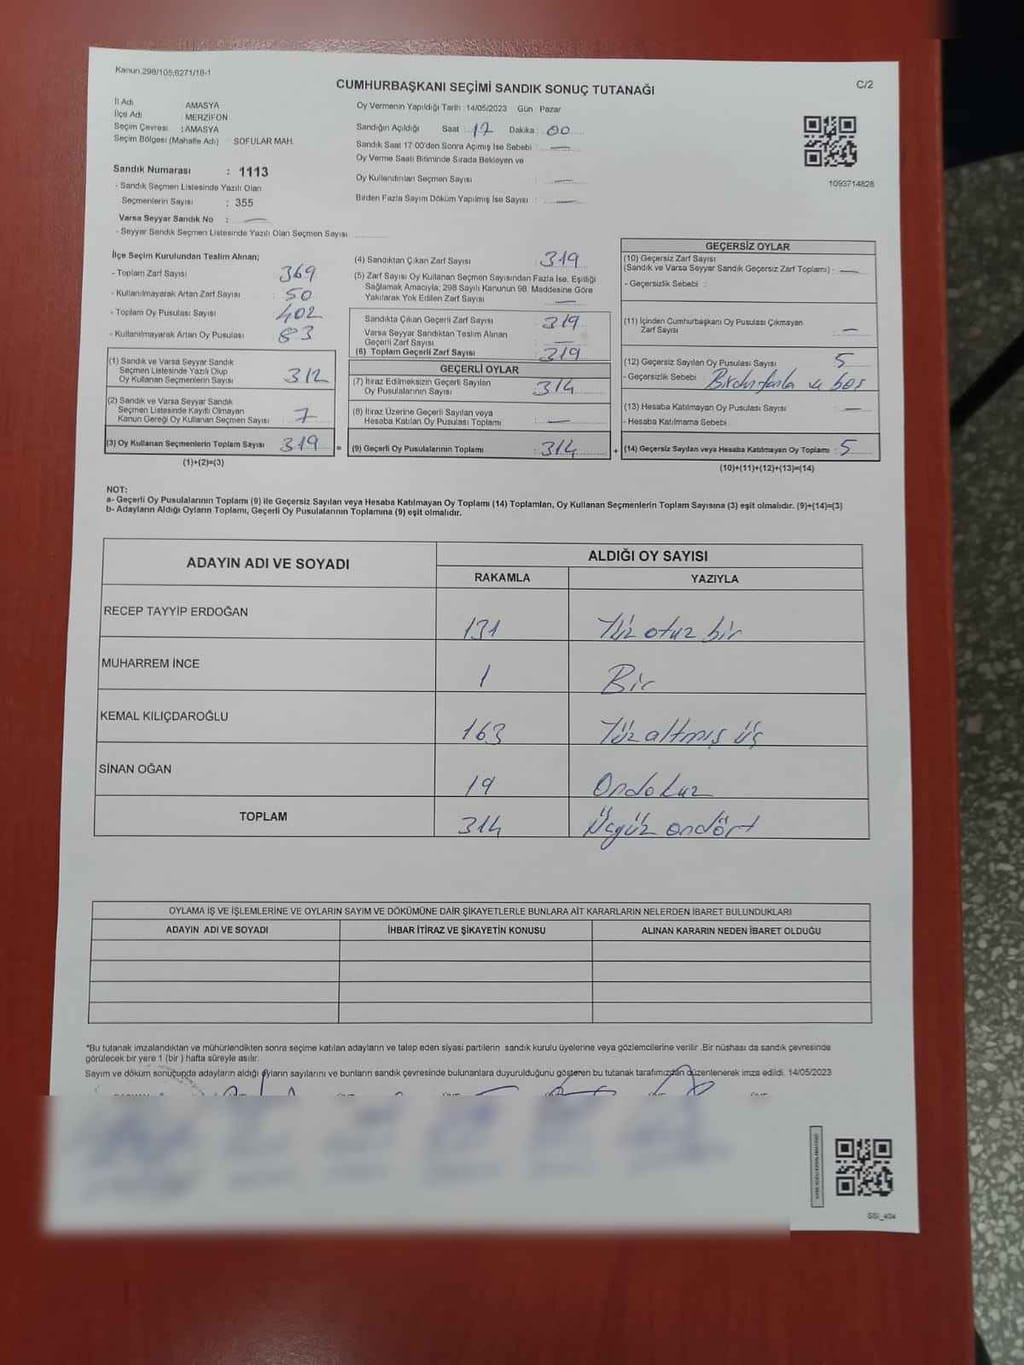 Kanun 298/105,6271/18-1
C/2
CUMHURBAŞKANI SEÇİMİ SANDIK SONUÇ TUTANAĞI
İl Adı AMASYA
İlçe Adı MERZİFON
Seçim Çevresi : AMASYA
Seçim Bölgesi (Mahalle Adı) SOFULAR MAH.
Sandık Numarası : 1113
- Sandık Seçmen Listesinde Yazılı Olan
Seçmenlerin Sayısı : 355
Varsa Seyyar Sandık No : —
- Seyyar Sandık Seçmen Listesinde Yazılı Olan Seçmen Sayısı
Oy Vermenin Yapıldığı Tarih :14/05/2023 Gün Pazar
Sandığın Açıldığı Saat 17 Dakika : 00
Sandık Saat 17:00'den Sonra Açımış İse Sebebi : —
Oy Verme Saati Bitiminde Sırada Bekleyen ve
Oy Kullandırılan Seçmen Sayısı : —
Birden Fazla Sayım Döküm Yapılmış İse Sayısı : —
1093714828
İlçe Seçim Kurulundan Teslim Alınan;
- Toplam Zarf Sayısı 369
- Kullanılmayarak Artan Zarf Sayısı 50
- Toplam Oy Pusulası Sayısı 402
- Kullanılmayarak Artan Oy Pusulası 83
(1) Sandık ve Varsa Seyyar Sandık
Seçmen Listesinde Yazılı Olup
Oy Kullanan Seçmenlerin Sayısı : 312
(2) Sandık ve Varsa Seyyar Sandık
Seçmen Listesinde Kayıtlı Olmayan
Kanun Gereği Oy Kullanan Seçmen Sayısı : 7
(3) Oy Kullanan Seçmenlerin Toplam Sayısı : 319 =
(1)+(2)=(3)
(4) Sandıktan Çıkan Zarf Sayısı : 319
(5) Zarf Sayısı Oy Kullanan Seçmen Sayısından Fazla İse, Eşitliği
Sağlamak Amacıyla; 298 Sayılı Kanunun 98. Maddesine Göre
Yakılarak Yok Edilen Zarf Sayısı : —
Sandıkta Çıkan Geçerli Zarf Sayısı : 319
Varsa Seyyar Sandıktan Teslim Alınan
Geçerli Zarf Sayısı : —
(6) Toplam Geçerli Zarf Sayısı : 319
GEÇERLİ OYLAR
(7) İtiraz Edilmeksizin Geçerli Sayılan
Oy Pusulalarının Sayısı : 314
(8) İtiraz Üzerine Geçerli Sayılan veya
Hesaba Katılan Oy Pusulası Toplamı : —
(9) Geçerli Oy Pusulalarının Toplamı : 314 +
GEÇERSİZ OYLAR
(10) Geçersiz Zarf Sayısı
(Sandık ve Varsa Seyyar Sandık Geçersiz Zarf Toplamı) : —
- Geçersizlik Sebebi :
(11) İçinden Cumhurbaşkanı Oy Pusulası Çıkmayan
Zarf Sayısı : —
(12) Geçersiz Sayılan Oy Pusulası Sayısı : 5
- Geçersizlik Sebebi : Birden fazla ve boş
(13) Hesaba Katılmayan Oy Pusulası Sayısı : —
- Hesaba Katılmama Sebebi :
(14) Geçersiz Sayılan veya Hesaba Katılmayan Oy Toplamı : 5
(10)+(11)+(12)+(13)=(14)
NOT:
a- Geçerli Oy Pusulalarının Toplamı (9) ile Geçersiz Sayılan veya Hesaba Katılmayan Oy Toplamı (14) Toplamları, Oy Kullanan Seçmenlerin Toplam Sayısına (3) eşit olmalıdır. (9)+(14)=(3)
b- Adayların Aldığı Oyların Toplamı, Geçerli Oy Pusulalarının Toplamına (9) eşit olmalıdır.
ADAYIN ADI VE SOYADI ALDIĞI OY SAYISI
RAKAMLA YAZIYLA
RECEP TAYYİP ERDOĞAN 131 Yüz otuz bir
MUHARREM İNCE 1 Bir
KEMAL KILIÇDAROĞLU 163 Yüz altmış üç
SİNAN OĞAN 19 Ondokuz
TOPLAM 314 Üçyüz ondört
OYLAMA İŞ VE İŞLEMLERİNE VE OYLARIN SAYIM VE DÖKÜMÜNE DAİR ŞİKAYETLERLE BUNLARA AİT KARARLARIN NELERDEN İBARET BULUNDUKLARI
ADAYIN ADI VE SOYADI İHBAR İTİRAZ VE ŞİKAYETİN KONUSU ALINAN KARARIN NEDEN İBARET OLDUĞU
*Bu tutanak imzalandıktan ve mühürlendikten sonra seçime katılan adayların ve talep eden siyasi partilerin sandık kurulu üyelerine veya gözlemcilerine verilir .Bir nüshası da sandık çevresinde
görülecek bir yere 1 (bir ) hafta süreyle asılır.
Sayım ve döküm sonuçunda adayların aldığı oyların sayılarını ve bunların sandık çevresinde bulunanlara duyurulduğunu gösteren bu tutanak tarafımızdan düzenlenerek imza edildi. 14/05/2023